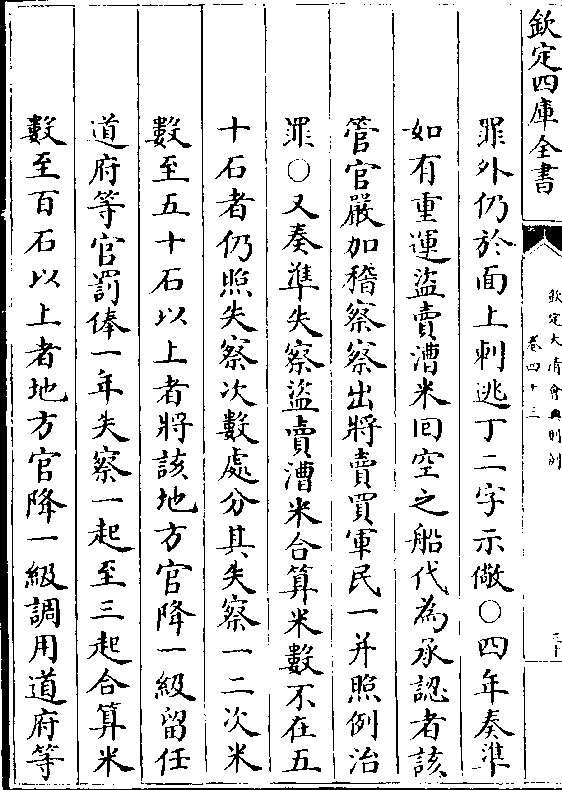 欽定四庫全書
欽定大清會典則例
卷四十三
三十
罪外仍於面上刺逃丁二字示儆○四年奏準
如有重運盜賣漕米回空之船代為承認者該
管官嚴加稽察察出將賣買軍民一并照例治
罪○又奏準失察盜賣漕米合算米數不在五
十石者仍照失察次數處分其失察一二次米
數至五十石以上者將該地方官降一級留任
道府等官罰俸一年失察一起至三起合算米
數至百石以上者地方官降一級調用道府等